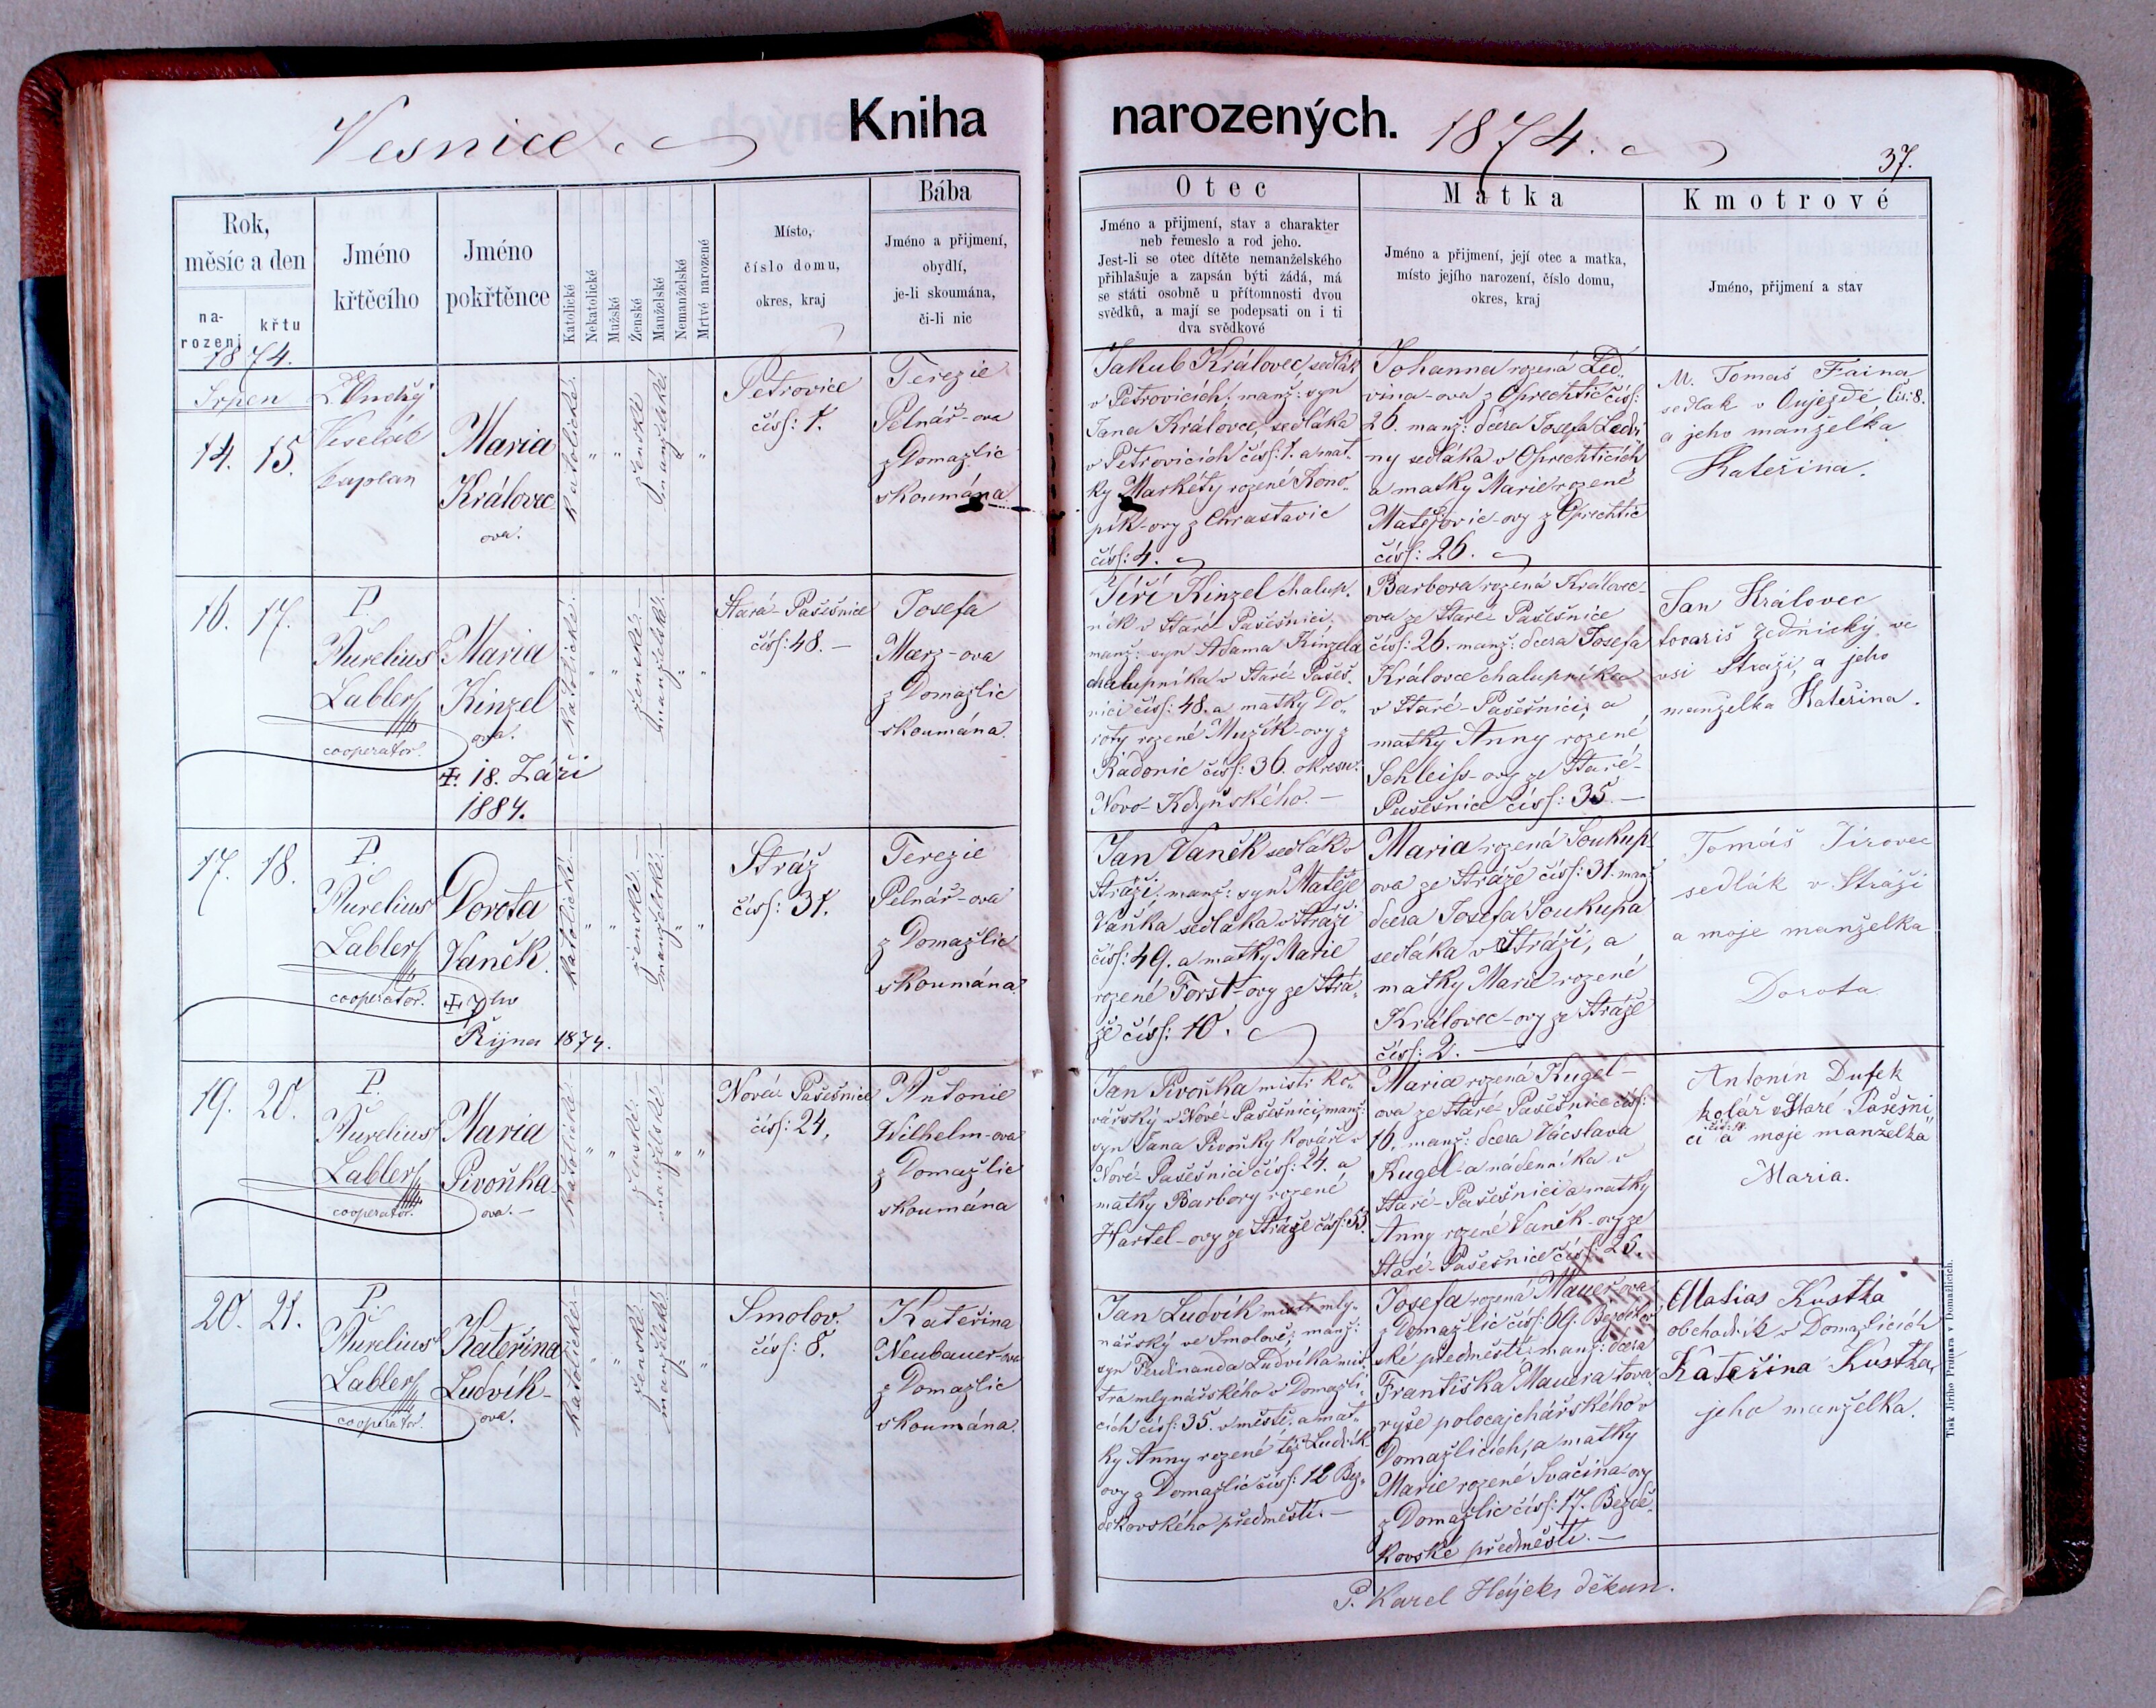 Vesnice.
Kniha
narozených.
1874.
37.
Rok,
měsíc a den
na-
rození
křtu
Jméno
křtěcího
Jméno
pokřtěnce
Katolické
Nekatolické
Mužské
Ženské
Manželské
Nemanželské
Mrtvé narozené
Místo,
číslo domu,
okres, kraj
Bába
Jméno a přijmení,
obydlí,
je-li skoumána,
či-li nic
Otec
Jméno a přijmení, stav a charakter
neb řemeslo a rod jeho.
Jest-li se otec dítěte nemanželského
přihlašuje a zapsán býti žádá, má
se státi osobně u přítomnosti dvou
svědků, a mají se podepsati on i ti
dva svědkové
Matka
Jméno a přijmení, její otec a matka,
místo jejího narození, číslo domu,
okres, kraj
Kmotrové
Jméno, přijmení a stav
1874.
Srpen
14. 15.
Veselák
kaplan
Maria
Královec
ova.
Katolické
" "
ženské
manželské
" "
Petrovice
čísl: 1.
Terezie
Pelnář-ova
z Domažlic
skoumána
Jakub Královec, sedlák
v Petrovicích, manž: syn
Jana Královce, sedláka
v Petrovicích čísl: 1. a mat-
ky Markéty rozené Kono-
pík-ovy z Chrastavic
čísl: 4.
Johanna rozená Led-
vina-ova z Oprechtic čísl:
26. manž: dcera Josefa Ledvi-
ny sedláka v Oprechticích
a matky Marie rozené
Matějovic-ovy z Oprechtic
čísl: 26.
M. Tomaš Faina
sedlak v Oujezdě čis: 8.
a jeho manželka
Kateřina.
16. 17.
P.
Aurelius
Labler
cooperator.
Maria
Kinzel
ova.
‡. 18. Září
1884.
Katolické.
" "
ženské.
manželské.
" "
Stará-Pašešnice
čísl: 48.
Josefa
Maerz-ova
z Domažlic
skoumána.
Jiří Kinzel chalup-
ník v Staré Pašešnici,
manž: syn Adama Kinzela
chalupníka v Staré-Pašeš-
nici čísl: 48. a matky Do-
roty rozené Mužík-ovy z
Radonic čísl: 36. okresu
Novo-Kdyňského.
Barbora rozená Královec-
ova ze Staré-Pašešnice
čísl: 26. manž: dcera Josefa
Královce chalupníka
v Staré-Pašešnici, a
matky Anny rozené
Schleiss-ovy ze Staré-
Pašešnice čísl: 35.
Jan Královec
tovariš zednický ve
vsi Straži, a jeho
manželka Kateřina.
17. 18.
P.
Aurelius
Labler
cooperator.
Dorota
Vaněk.
‡. 7ho
Října 1874.
Katolické.
" "
ženské.
manželské.
" "
Stráž
čísl: 31.
Terezie
Pelnář-ova
z Domažlic
skoumána.
Jan Vaněk sedlák v
Stráži, manž: syn Matěje
Vaňka sedláka v Stráži
čísl: 49. a matky Marie
rozené Forst-ovy ze Strá-
že čísl: 10.
Maria rozená Soukup-
ova ze Stráže čísl: 31. manž
dcera Josefa Soukupa
sedláka v Stráži, a
matky Marie rozené
Královec-ovy ze Stráže
čísl: 2.
Tomáš Jírovec
sedlák v Stráži
a moje manželka
Dorota
19. 20.
P.
Aurelius
Labler
cooperator.
Maria
Pivoňka-
ova.
Katolické.
" "
ženské.
manželské.
" "
Nová-Pašešnice
čísl: 24,
Antonie
Wilhelm-ova
z Domažlic
skoumána
Jan Pivoňka mistr ko-
vářský v Nové-Pašešnici, manž:
syn Jana Pivoňky kováře v
Nové-Pašešnici čísl: 24. a
matky Barbory rozené
Hartel-ovy ze Stráže čísl:
Maria rozená Kugel-
ova ze Staré-Pašešnice čísl:
16. manž: dcera Václava
Kugel-a nádenníka v
Staré-Pašešnici a matky
Anny rozené Vaněk-ovy ze
Staré-Pašešnice čísl: 25.
Antonín Dufek
kolář v Staré Pašešni
ci a moje manželka
Maria.
20. 21.
P.
Aurelius
Labler
cooperator.
Kateřina
Ludvík-
ova.
Katolické.
" "
ženské.
manželské.
" "
Smolov.
čísl: 8.
Kateřina
Neubauer-ova
z Domažlic
skoumána.
Jan Ludvík mistr mly-
nářský ve Smolově, manž:
syn Ferdinanda Ludvíka mis-
tra mlynářského v Domažli-
cích čísl: 35. v městě, a mat-
ky Anny rozené též Ludvík-
ovy z Domažlic čísl: 12 Bez-
děkovského předměstí.
Josefa rozená Mauer-ova
z Domažlic čísl: 69. Bezděkov
ské předměstí; manž: dcera
Františka Mauera tova
ryše polocajchářského v
Domažlicích, a matky
Marie rozené Svačina-ovy
z Domažlic čísl: 17. Bezdě-
kovské předměstí.
Matias Kustka
obchodník v Domažlicích
Kateřina Kustka,
jeho manželka.
P. Karel Hájek, děkan.
Tisk Jiřího Prunara v Domažlicích.